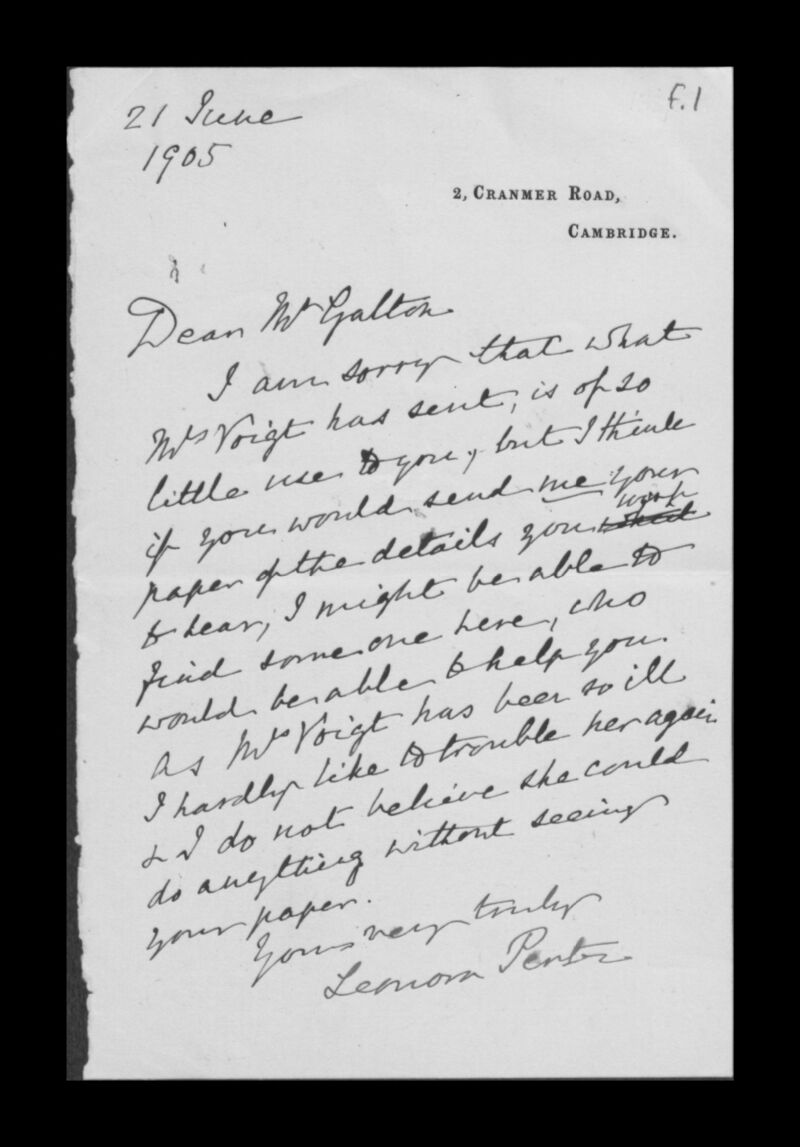 21 June
1905
f.1
2, CRANMER ROAD,
CAMBRIDGE.
Dear Mr Galton
I am sorry that what
Mrs Voigt has sent, is of so
little use to you, but I think
if you would send me your
paper of the details you wish
to hear, I might be able to
find some one here, who
would be able to help you.
As Mrs Voigt has been so ill
I hardly like to trouble her again
& I do not believe she could
do anything without seeing
your paper.
Yours very truly
Leonora